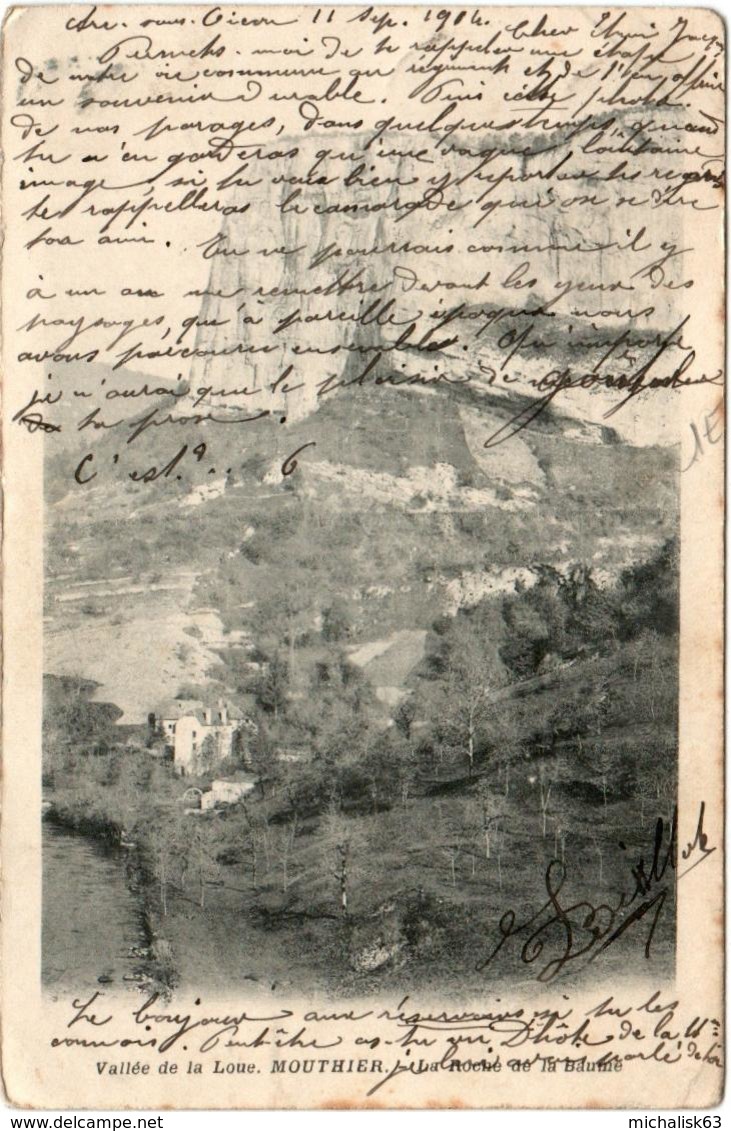 Arc-sous-Cicon 11 Sep. 1904.
Cher
Permets-moi de te rappeler une étape
de notre vie commune au régiment et de t'en offrir
un souvenir durable. Puis cette photo
de nos parages, dans quelques temps, quand
tu n'en garderas qu'une vague, lointaine
image, si tu veux bien y reporter tes regards
te rappelleras le camarade qui on se dire
ton ami. Tu ne pourrais comme il y
à un an me remettre devant les yeux des
paysages, qu'à pareille époque nous
avons parcouru ensemble. Qu'importe
je n'aurai que le plaisir de
ta prose.
C'est. 6
Le bonjour aux réservoirs si tu les
connais. Peut-être as-tu un Dhôte de la 11me
je lui avais parlé de toi
Vallée de la Loue. MOUTHIER. - La Roche de la Baume
michalisk63